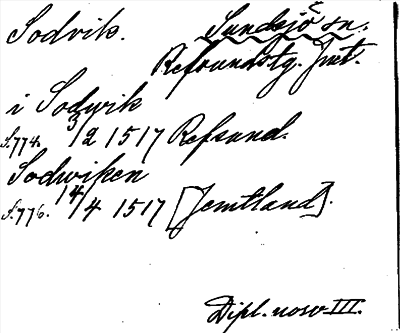 Sodvik. Sundsjö sn.
Refsundstg. Jmt.
i Sodwik
S.774. 3/2 1517 Refsund.
Sodwiken
S.776. 14/4 1517 [Jemtland].
Dipl. norv. III.